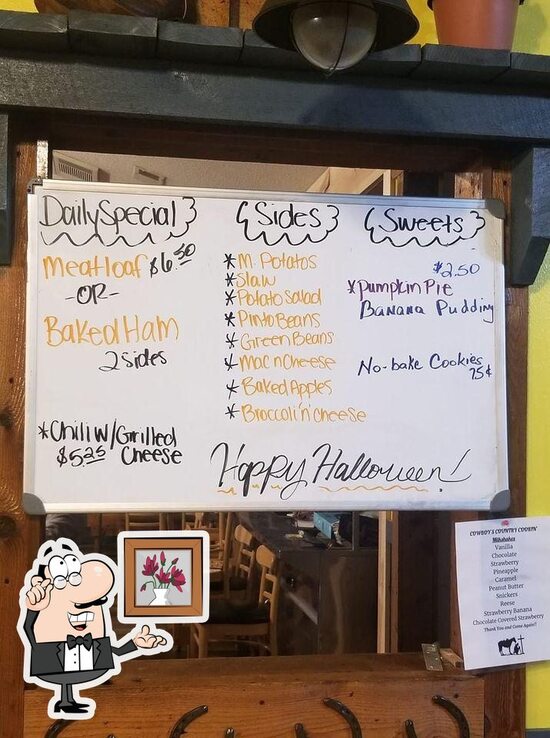 Daily Special
Meatloaf $6.50
-OR-
Baked Ham
2 sides
*Chili w/ Grilled
$5.25 Cheese
Sides
*M. Potatos
*Slaw
*Potato Salad
*Pinto Beans
*Green Beans
*Mac n Cheese
*Baked Apples
*Broccoli n' cheese
Sweets
$2.50
*Pumpkin Pie
Banana Pudding
No-bake Cookies
75¢
Happy Halloween!
COWBOY'S COUNTRY COOKIN
Milkshakes
Vanilla
Chocolate
Strawberry
Pineapple
Caramel
Peanut Butter
Snickers
Reese
Strawberry Banana
Chocolate Covered Strawberry
Thank You and Come Again!!